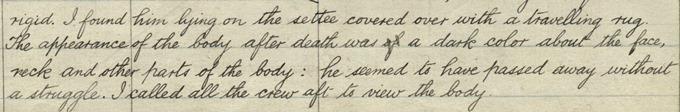 rigid. I found him lying on the settee covered over with a travelling rug.
The appearance of the body after death was of a dark color about the face,
neck and other parts of the body: he seemed to have passed away without
a struggle. I called all the crew aft to view the body.